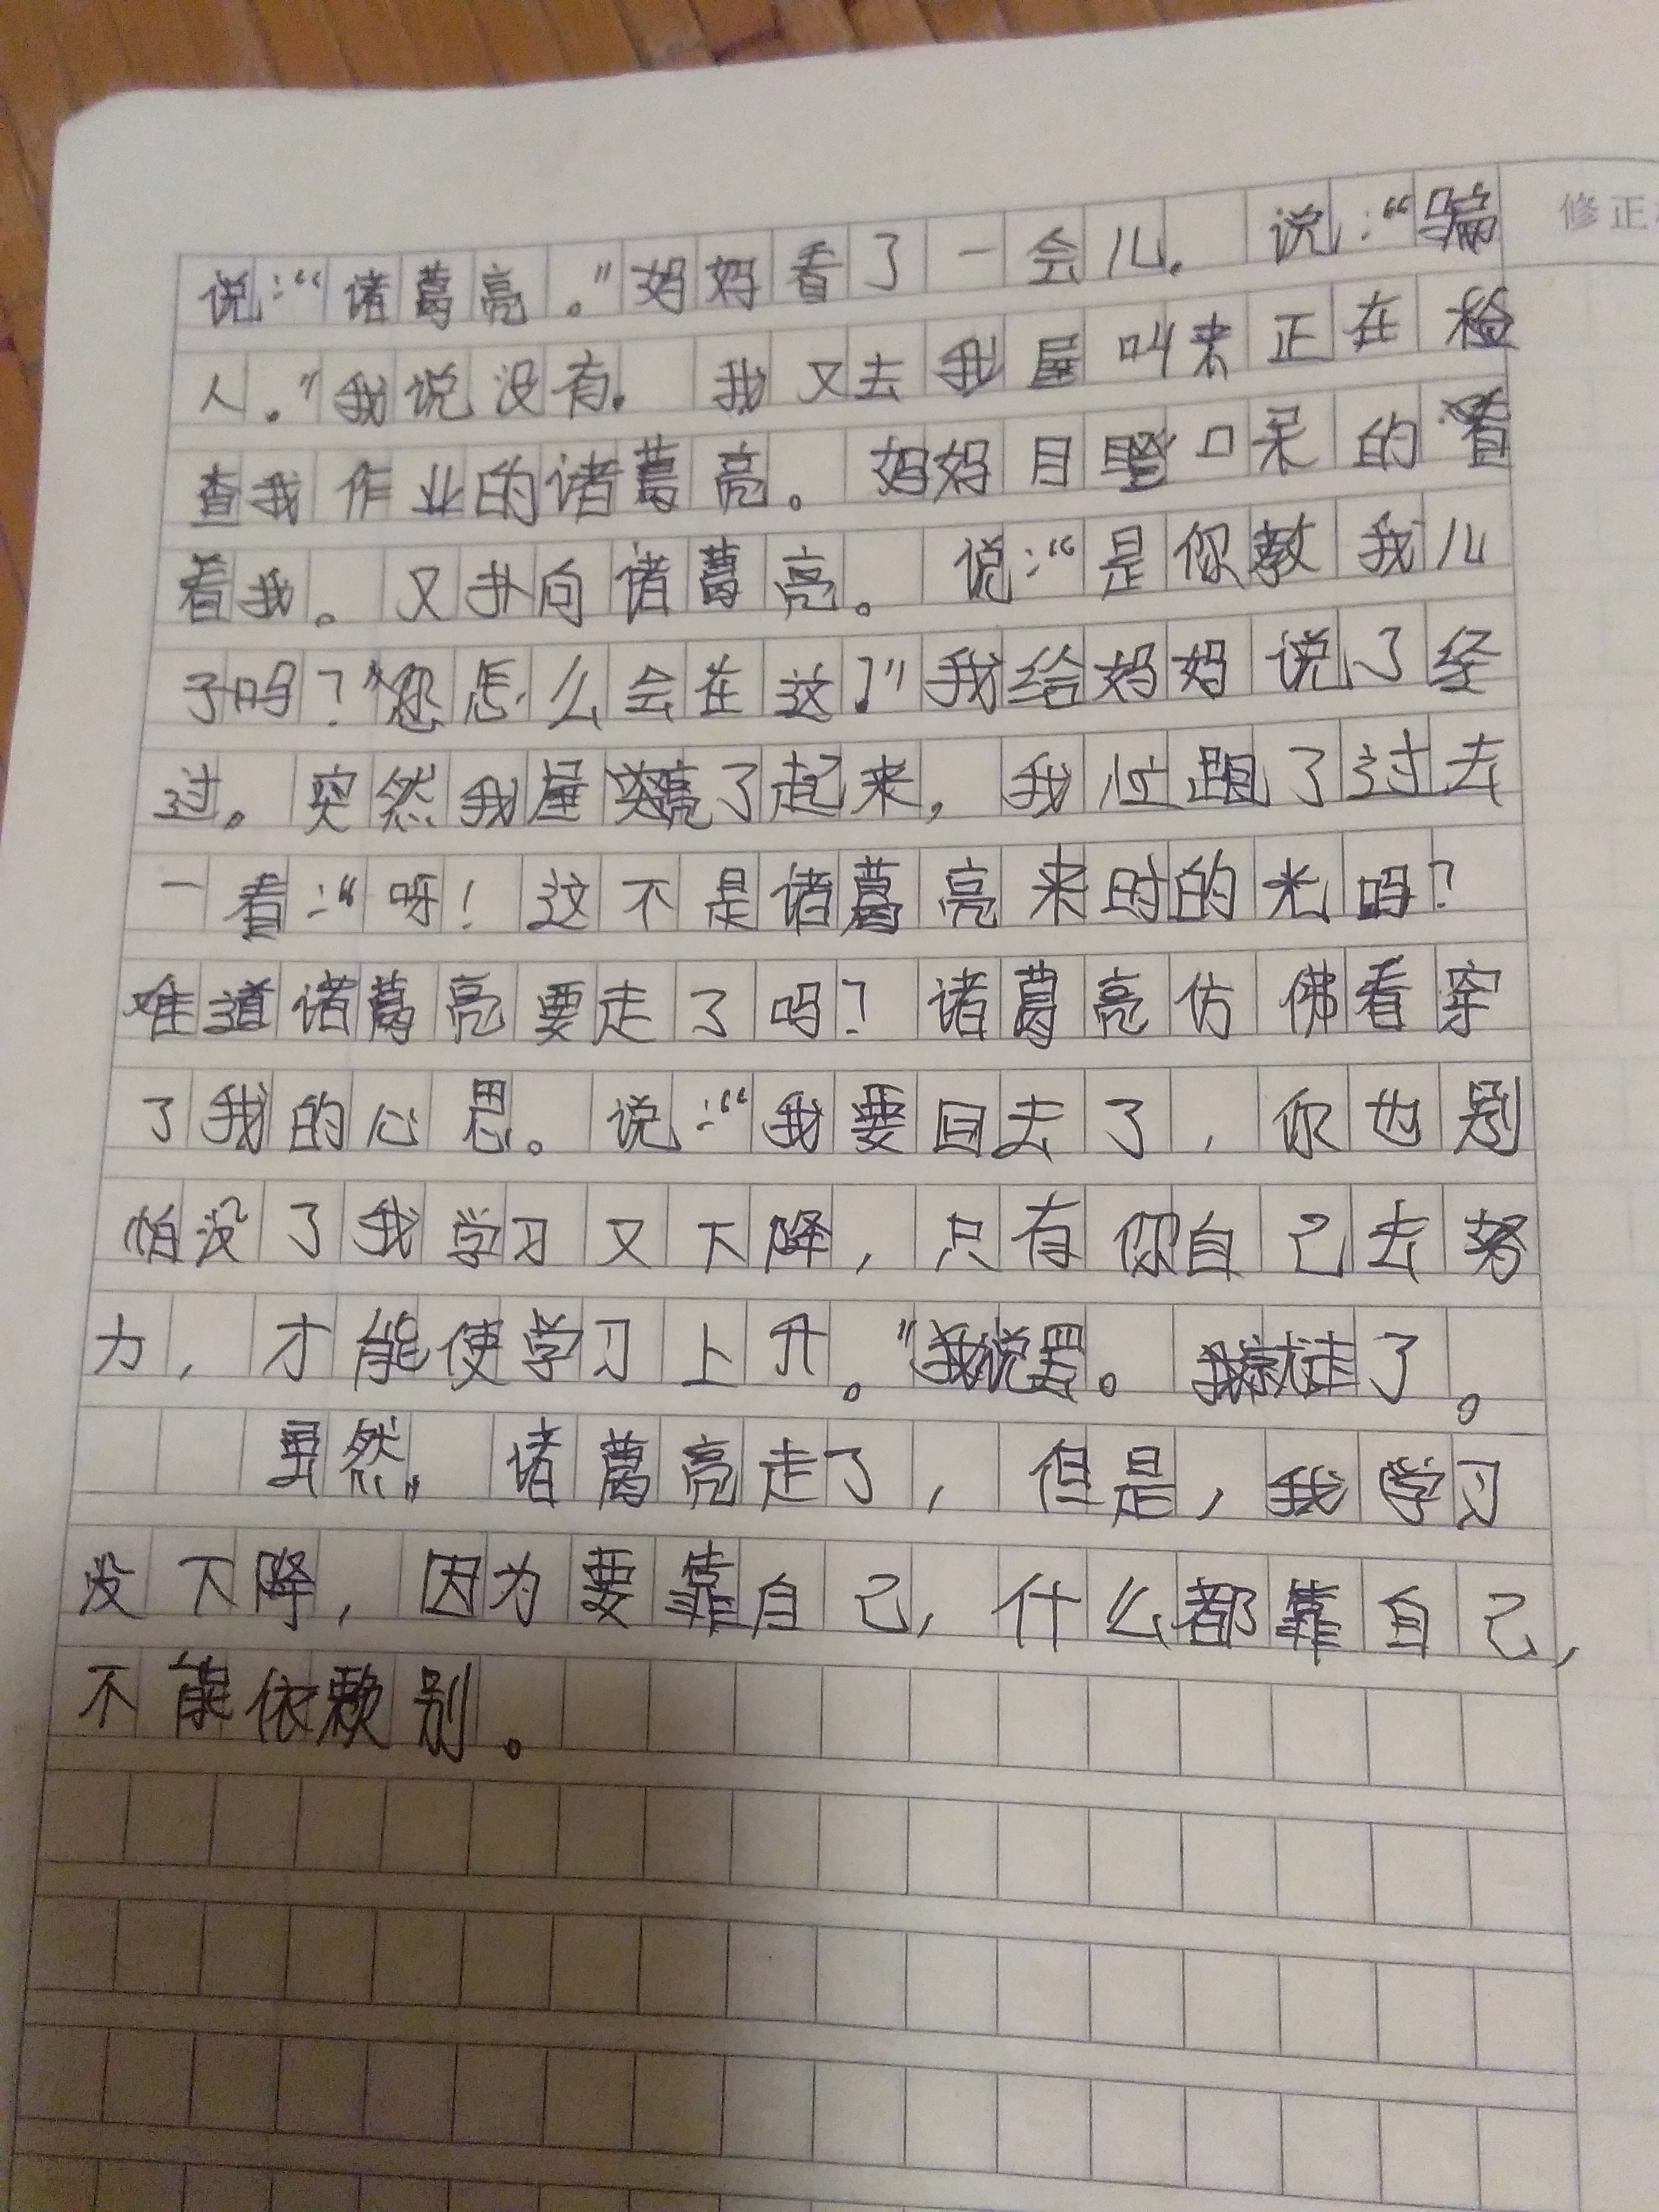 修正
说:“诸葛亮。”妈妈看了一会儿。说:“骗
人。”我说没有。我又去我屋叫来正在检
查我作业的诸葛亮。妈妈目瞪口呆的看
看我。又扑向诸葛亮。说:“是你教我儿
子吗?”“您怎么会在这?”我给妈妈说了经
过。突然我屋亮了起来,我忙跑了过去
一看:“呀!这不是诸葛亮来时的光吗?
难道诸葛亮要走了吗?诸葛亮仿佛看穿
了我的心思。说:“我要回去了,你也别
怕没了我学习又下降,只有你自己去努
力,才能使学习上升。”我说罢。就走了。
虽然。诸葛亮走了,但是,我学习
没下降,因为要靠自己,什么都靠自己,
不能依赖别。